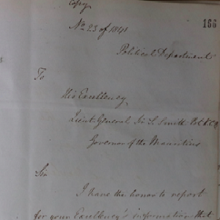 Copy.
166
No 23 of 1841
Political Department
To
His Excellency,
Lieut General
Governor of the Mauritius
Sir
I have the honor to report
for your Excellency's information that